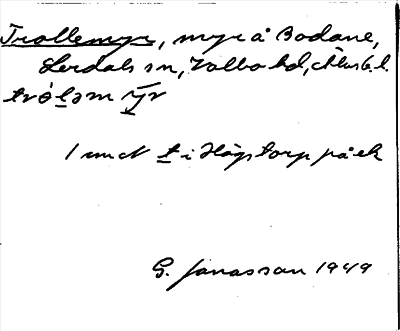 Trollemyr, myr å Bodane,
Lerdals sn, Valbo hd, Älvsb. l.
tròləmyr
1 m t i Högstorp på ek
G. Jonasson 1949